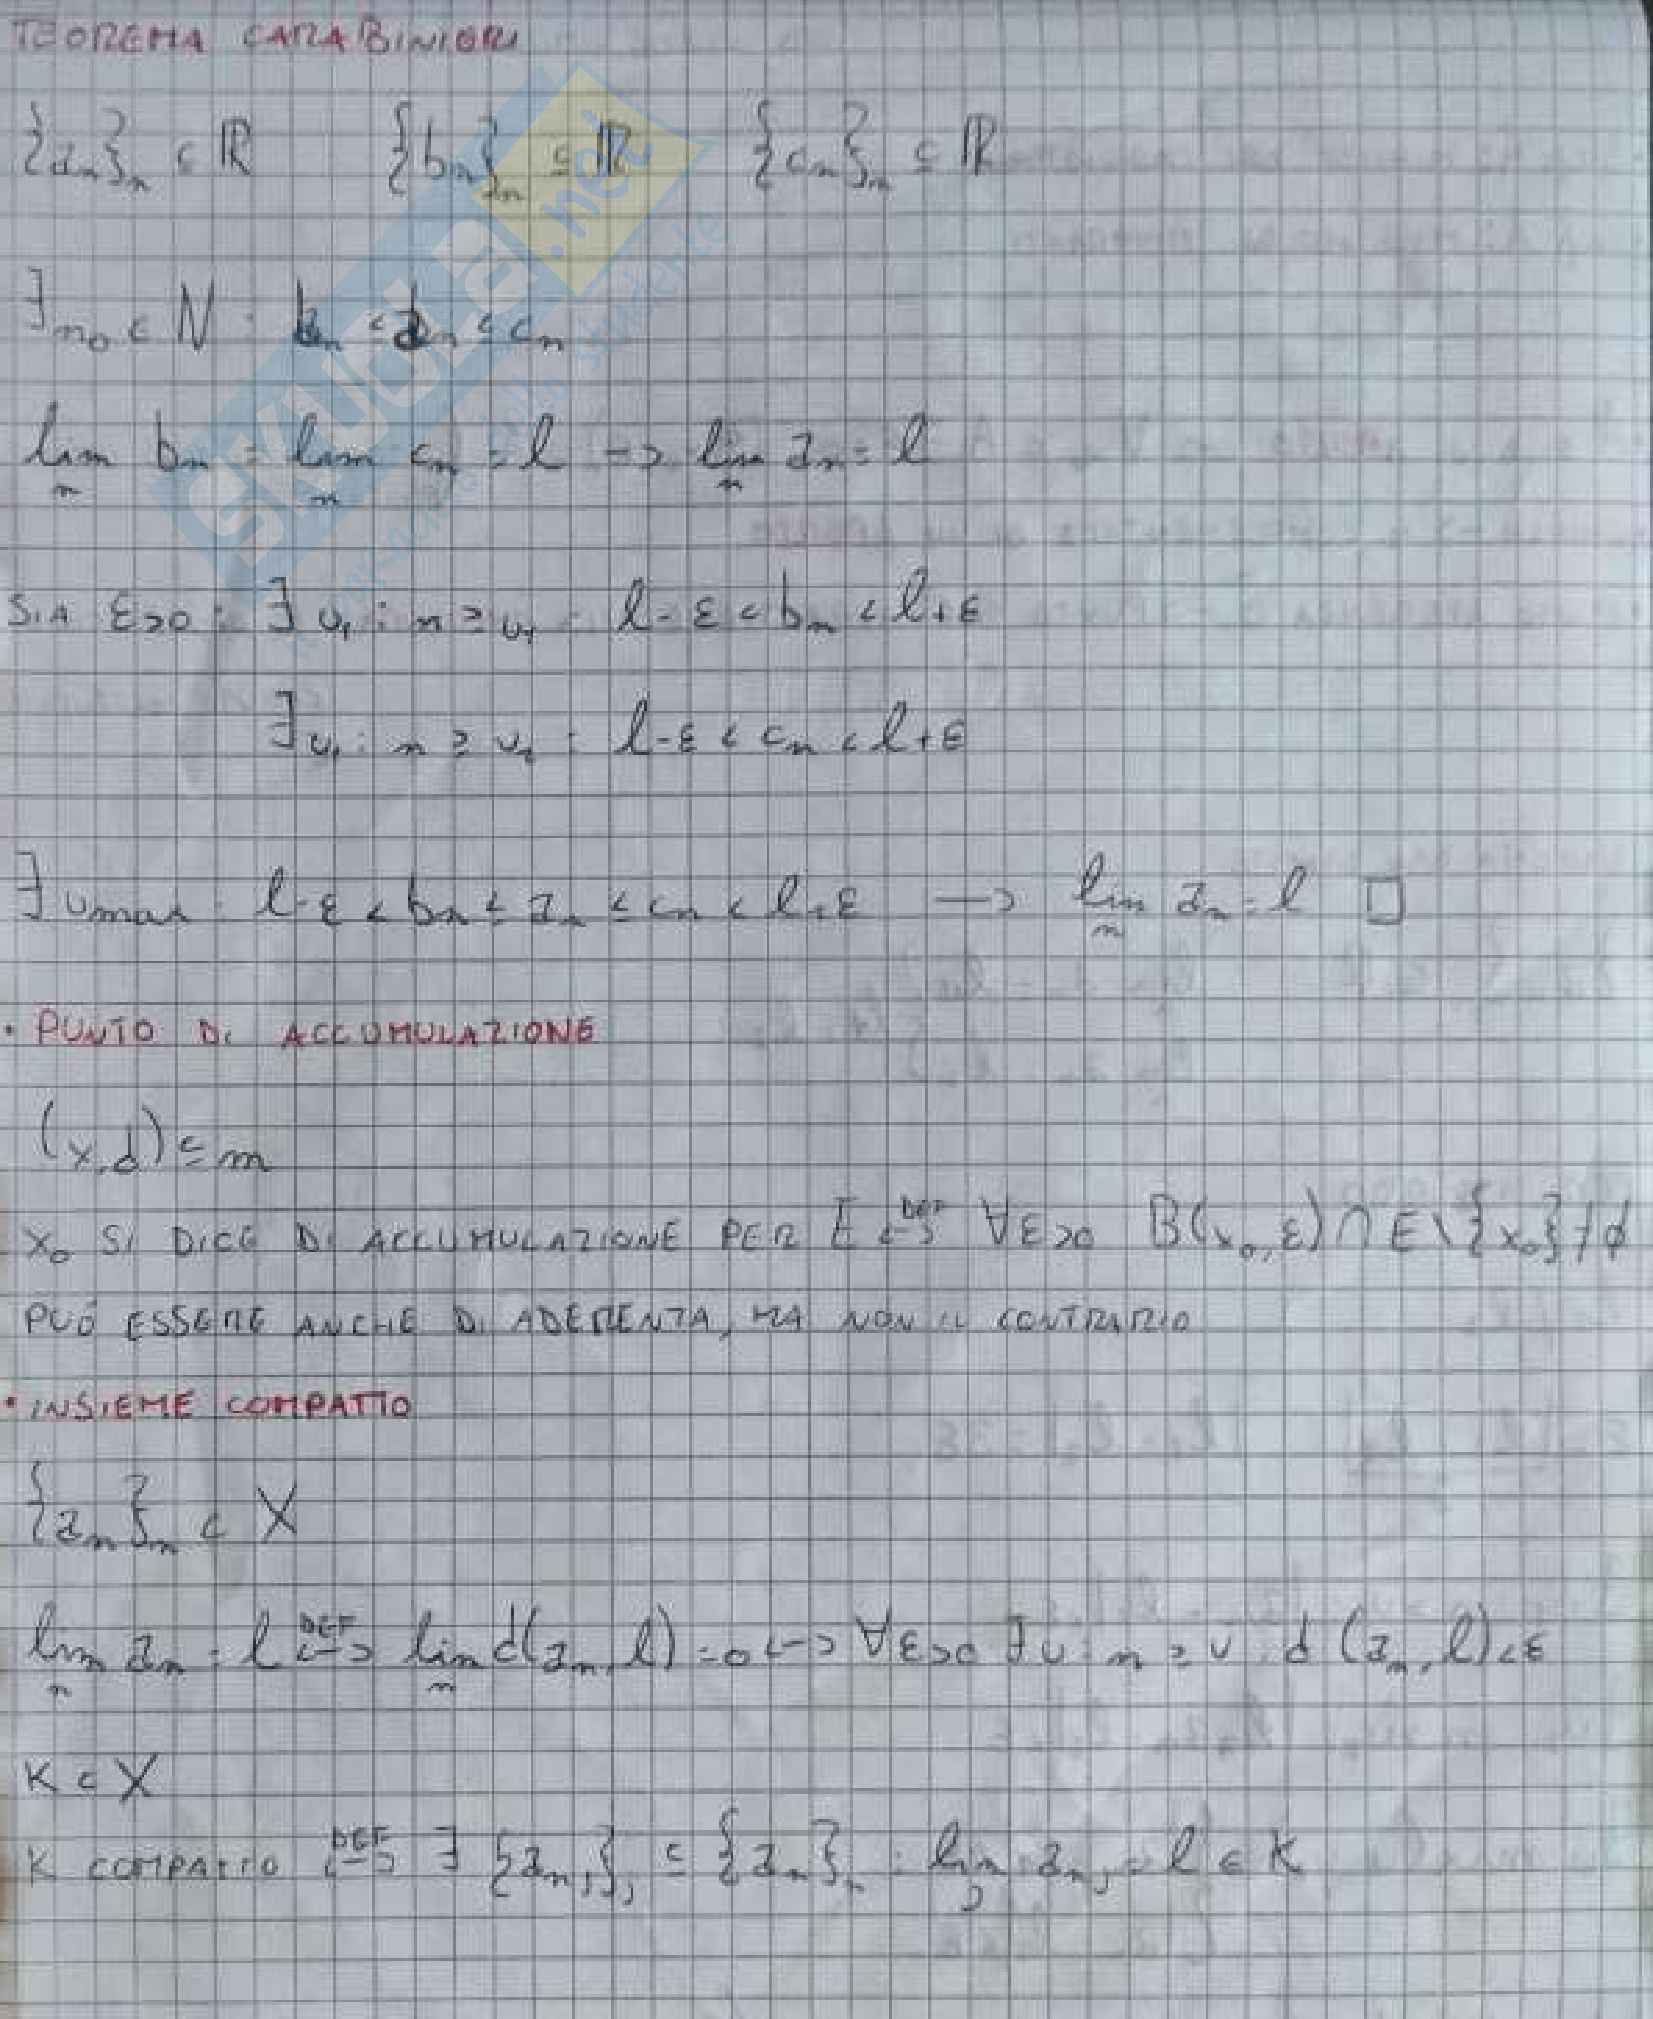 TEOREMA CARABINIERI
{aₙ}ₙ ⊆ ℝ {bₙ}ₙ ⊆ ℝ {cₙ}ₙ ⊆ ℝ
∃n₀ ∈ N : bₙ ≤ aₙ ≤ cₙ
lim bₙ = lim cₙ = l → lim aₙ = l
n n n
SIA ε>0 : ∃ ν₁ : n ≥ ν₁ : l-ε < bₙ < l+ε
∃ν₁ : n ≥ ν₂ : l-ε < cₙ < l+ε
∃ νmax : l-ε < bₙ ≤ aₙ ≤ cₙ < l+ε → lim aₙ = l □
n
• PUNTO DI ACCUMULAZIONE
(x,d) ⊆ m
x₀ SI DICE DI ACCUMULAZIONE PER E ⟷ᴰᴱᶠ ∀ε>0 B(x₀,ε) ∩ E \ {x₀} ≠ ∅
PUÓ ESSERE ANCHE DI ADERENZA, MA NON IL CONTRARIO
• INSIEME COMPATTO
{aₙ}ₙ ⊂ X
lim aₙ = l ⟷ᴰᴱᶠ lim d(aₙ, l) = 0 ⟷ ∀ε>0 ∃ ν : n ≥ ν : d (aₙ, l) < ε
n n
K ⊂ X
K COMPATTO ⟷ᴰᴱᶠ ∃ {aₙⱼ}ⱼ ⊆ {aₙ}ₙ : lim aₙⱼ = l ∈ K
j
SKUOLA.net